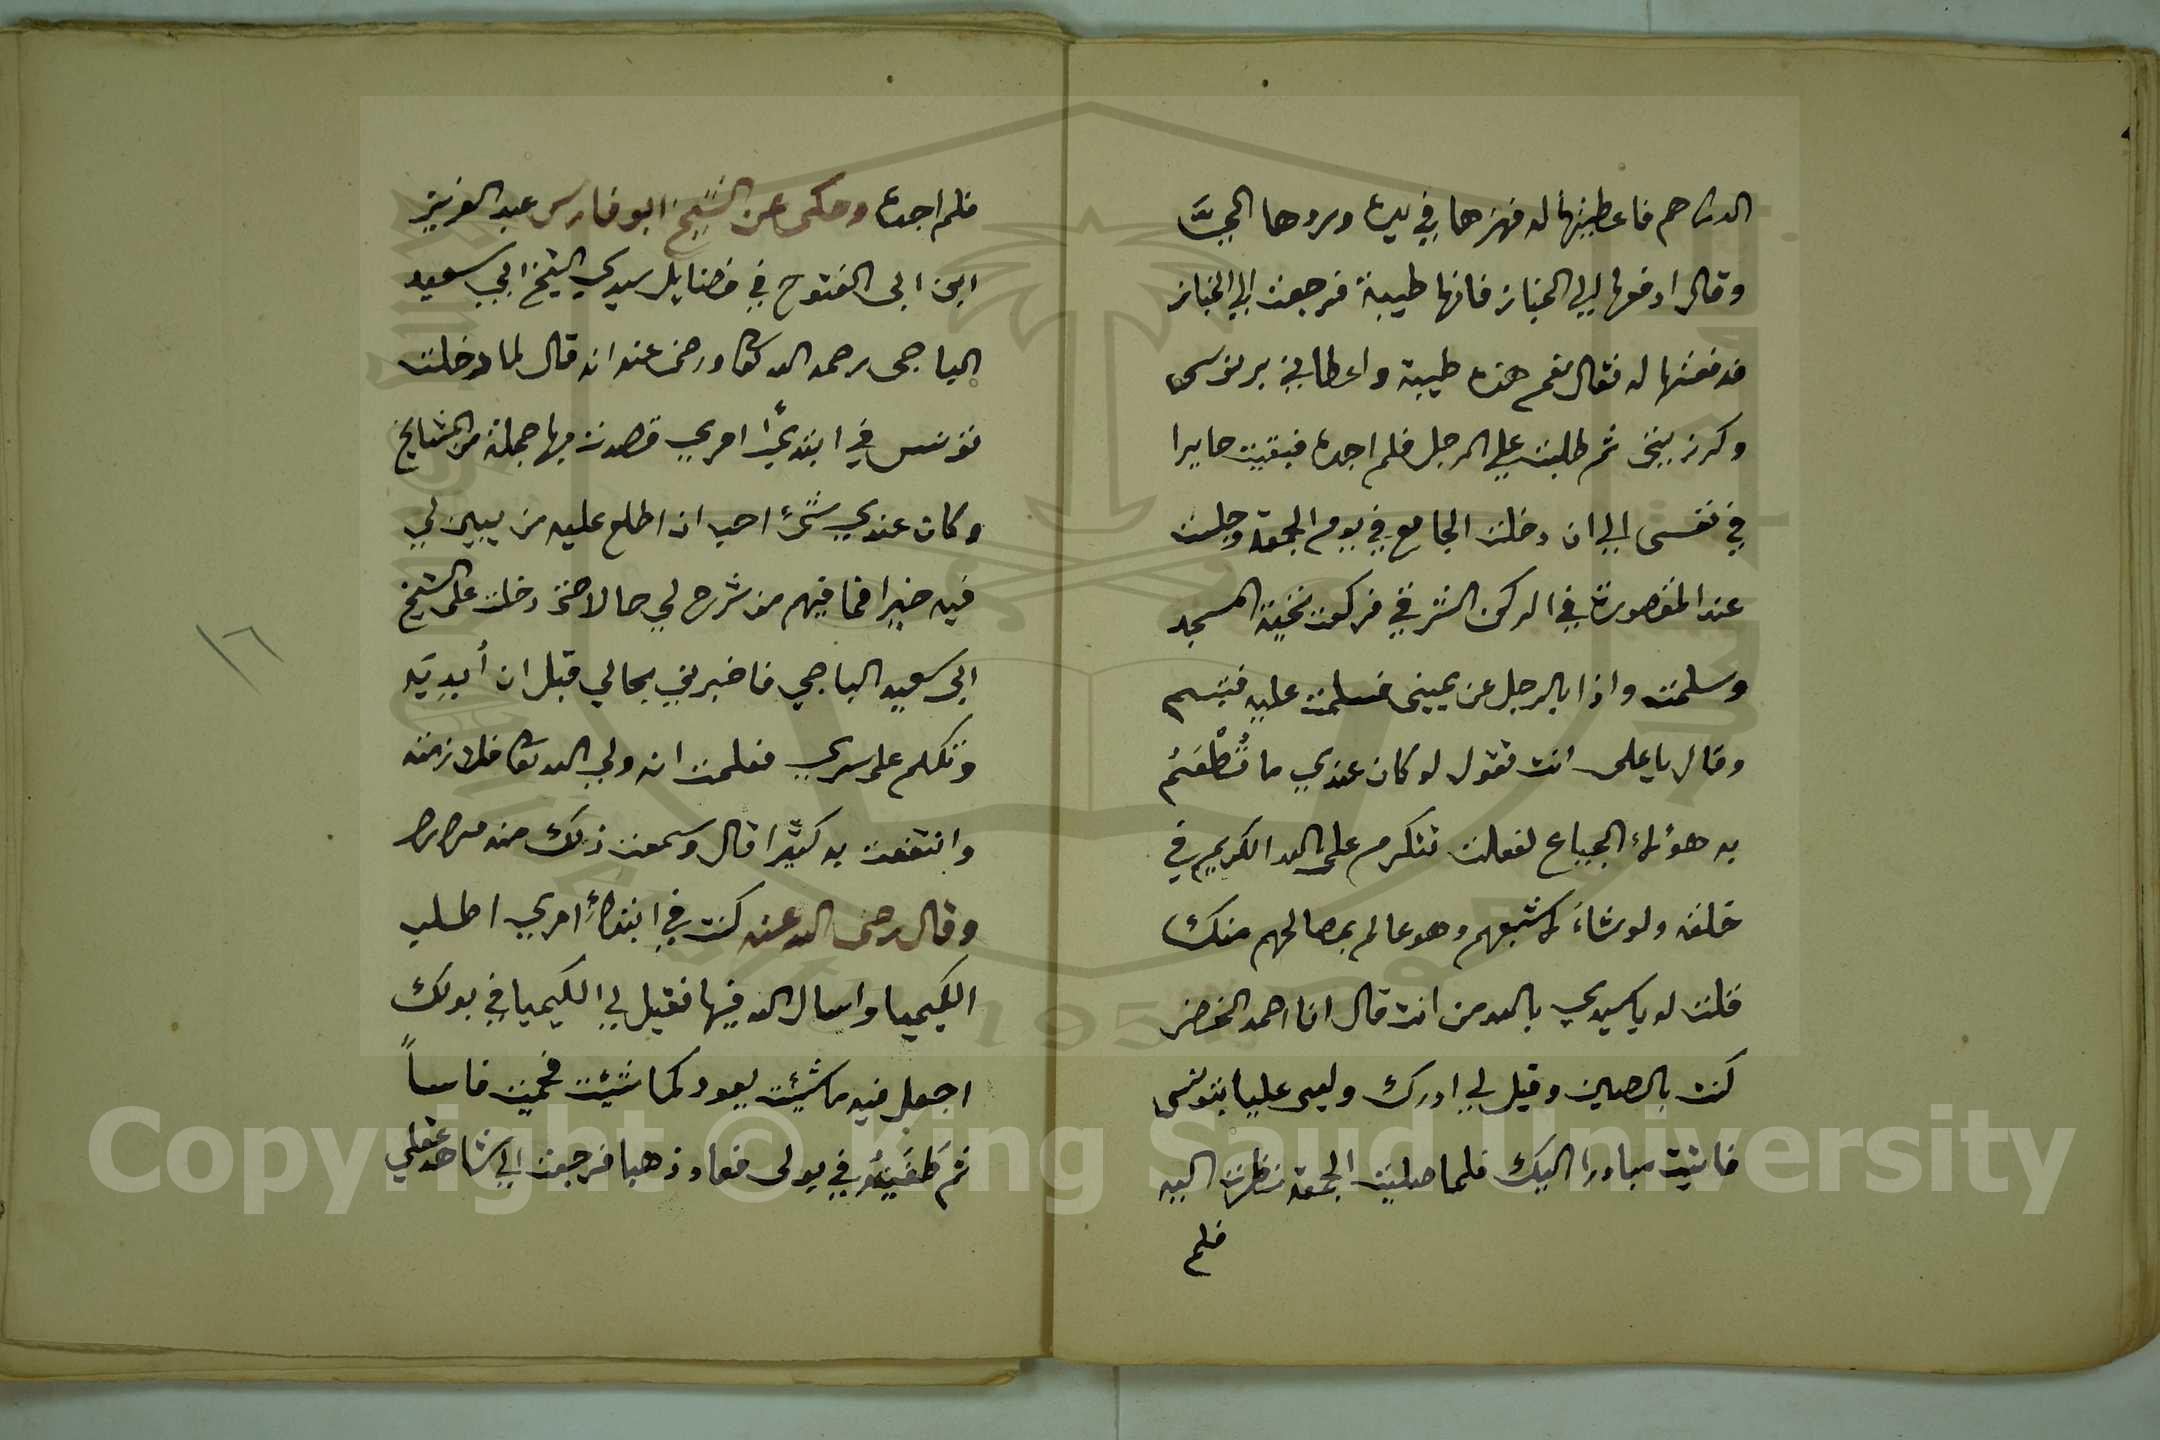 الدراهم فاعطيتها له فهزها في يده وردها الىَّ
وقال ادفعها الي الخباز فانها طيبة فرجعت الي الخباز
فدفعتها له فقال نعم هذه طيبة واعطاني برنوسى
وكرزيتى ثم طلبت علي الرجل فلم اجده فبقيت حايرا
في نفسى الي ان دخلت الجامع في يوم الجمعة وجلست
عند المقصورة في الركن الشرقي فركعت تحية المسجد
وسلمت واذا بالرجل عن يمينى فسلمت عليه فتبسم
وقال يا على انت تقول لو كان عندي ما تُطْعَم
به هؤلاء الجياع لفعلت تتكرم على الله الكريم في
خلقه ولو شاءَ لاشبعهم وهو عالم بمصالحهم منك
فقلت له يا سيدي بالله من انت قال انا احمد الخضر
كنت بالصين وقيل لي ادرك وليى عليا بتونس
فاتيت مبادرا اليك فلما صليت الجمعة نظرت اليه
فلم
فلم اجده وحكى عن الشيخ ابو فارس عبد العزيز
ابن ابى الفتوح في فضايل سيدي الشيخ ابي سعيد
الباجى رحمه الله تعالى ورضى عنه انه قال لما دخلت
تونس في ابتدائي امري قصدت بها جملة من المشايخ
وكان عندي شئٌ احب ان اطلع عليه من يبين لي
فيه خبرا فما فيهم من شرح لي حالا حتى دخلت على الشيخ
ابى سعيد الباجي فاخبرني بحالي قبل ان أبديَه
وتكلم على سري فعلمت انه ولي الله تعالى فلازمته
وانتفعت به كثيرًا قال وسمعت ذلك منه مرارا
وقال رضى الله عنه كنت في ابتداءِ امري اطلب
الكيميا واسال الله فيها فقيل لي الكيميا في بولك
اجعل فيه ما شئت يعود كما شئت فحميت فاساً
ثم طَفَيتُه في بولى فعاد ذهبا فرجعت الي شاهد عقلي
١٦
Copyright © King Saud University
1957